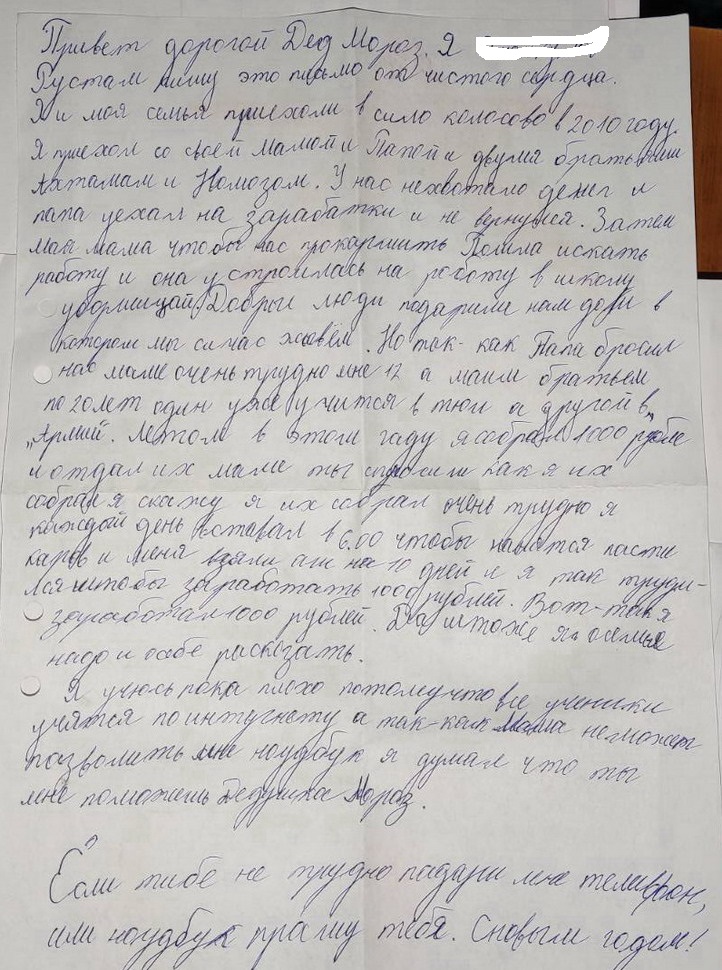 Привет дорогой Дед Мороз. Я
Рустам пишу это письмо от чистого сердца.
Я и моя семья приехоли в сило колосово в 2010 году.
Я приехол со своей Мамой и Папой и двумя братьями
Ахтамам и Номозом. У нас нехвотало денег и
папа уехал на зарабатки и не вернулся. Затем
мая мама чтобы нас прокармить Пошла искать
работу и она устроилась на роботу в школу
уборщицай. Добрыи люди подарили нам дом в
котером мы сичас живём. Но так-как Папа бросил
нас маме очень трудно мне 12 а маим братьем
по 20 лет один уже учится в тюи а другой в
"Армий. Летом в этом гаду я собрал 1000 рубле
и отдал их маме ты спросиш как я их
собрал я скажу я их собрал очень трудно я
каждый день вставал в 6.00 чтобы нанятся пасти
каров и меня взяли аш на 10 дней и я так труди-
лся штобы заработать 1000 рублей. Вот-так я
заработал 1000 рублей. Да што же я о семье
надо и о себе расказать.
Я учюсь пока плохо потомучто все ученики
учятся по интугнету а так-как Мама неможет
пазволить мне ноудбук я думал что ты
мне поможешь Дедушка Мороз.
Если тибе не трудно падари мне телифон,
или ноудбук прашу тебя. С новым годом!